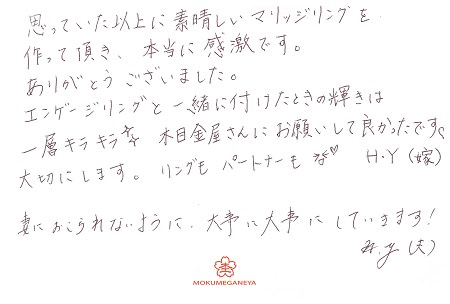 思っていた以上に素晴しいマリッジリングを
作って頂き、本当に感激です。
ありがとうございました。
エンゲージリングと一緒に付けたときの輝きは
一層キラキラ 木目金屋さんにお願いして良かったです。
大切にします。リングもパートナーも H・Y(嫁)
妻におこられないように、大事に大事にしていきます!
H.Y(夫)
MOKUMEGANEYA